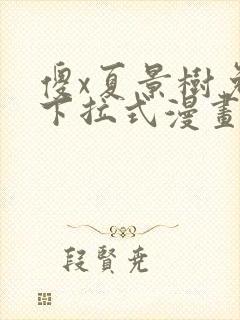 傻x夏景樹
下拉式漫畫
段賢堯